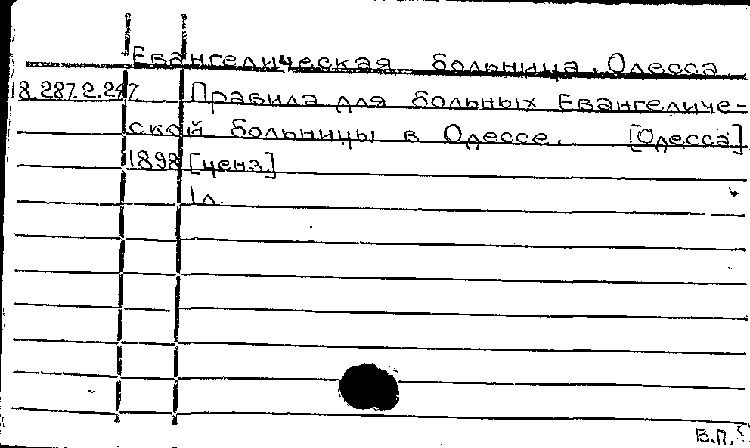 Евангелическая больница. Одесса
8.287.2.247 Правила для больных Евангеличе-
ской больницы в Одессе. [Одесса]
1898 [ценз]
1 л.
В.П.